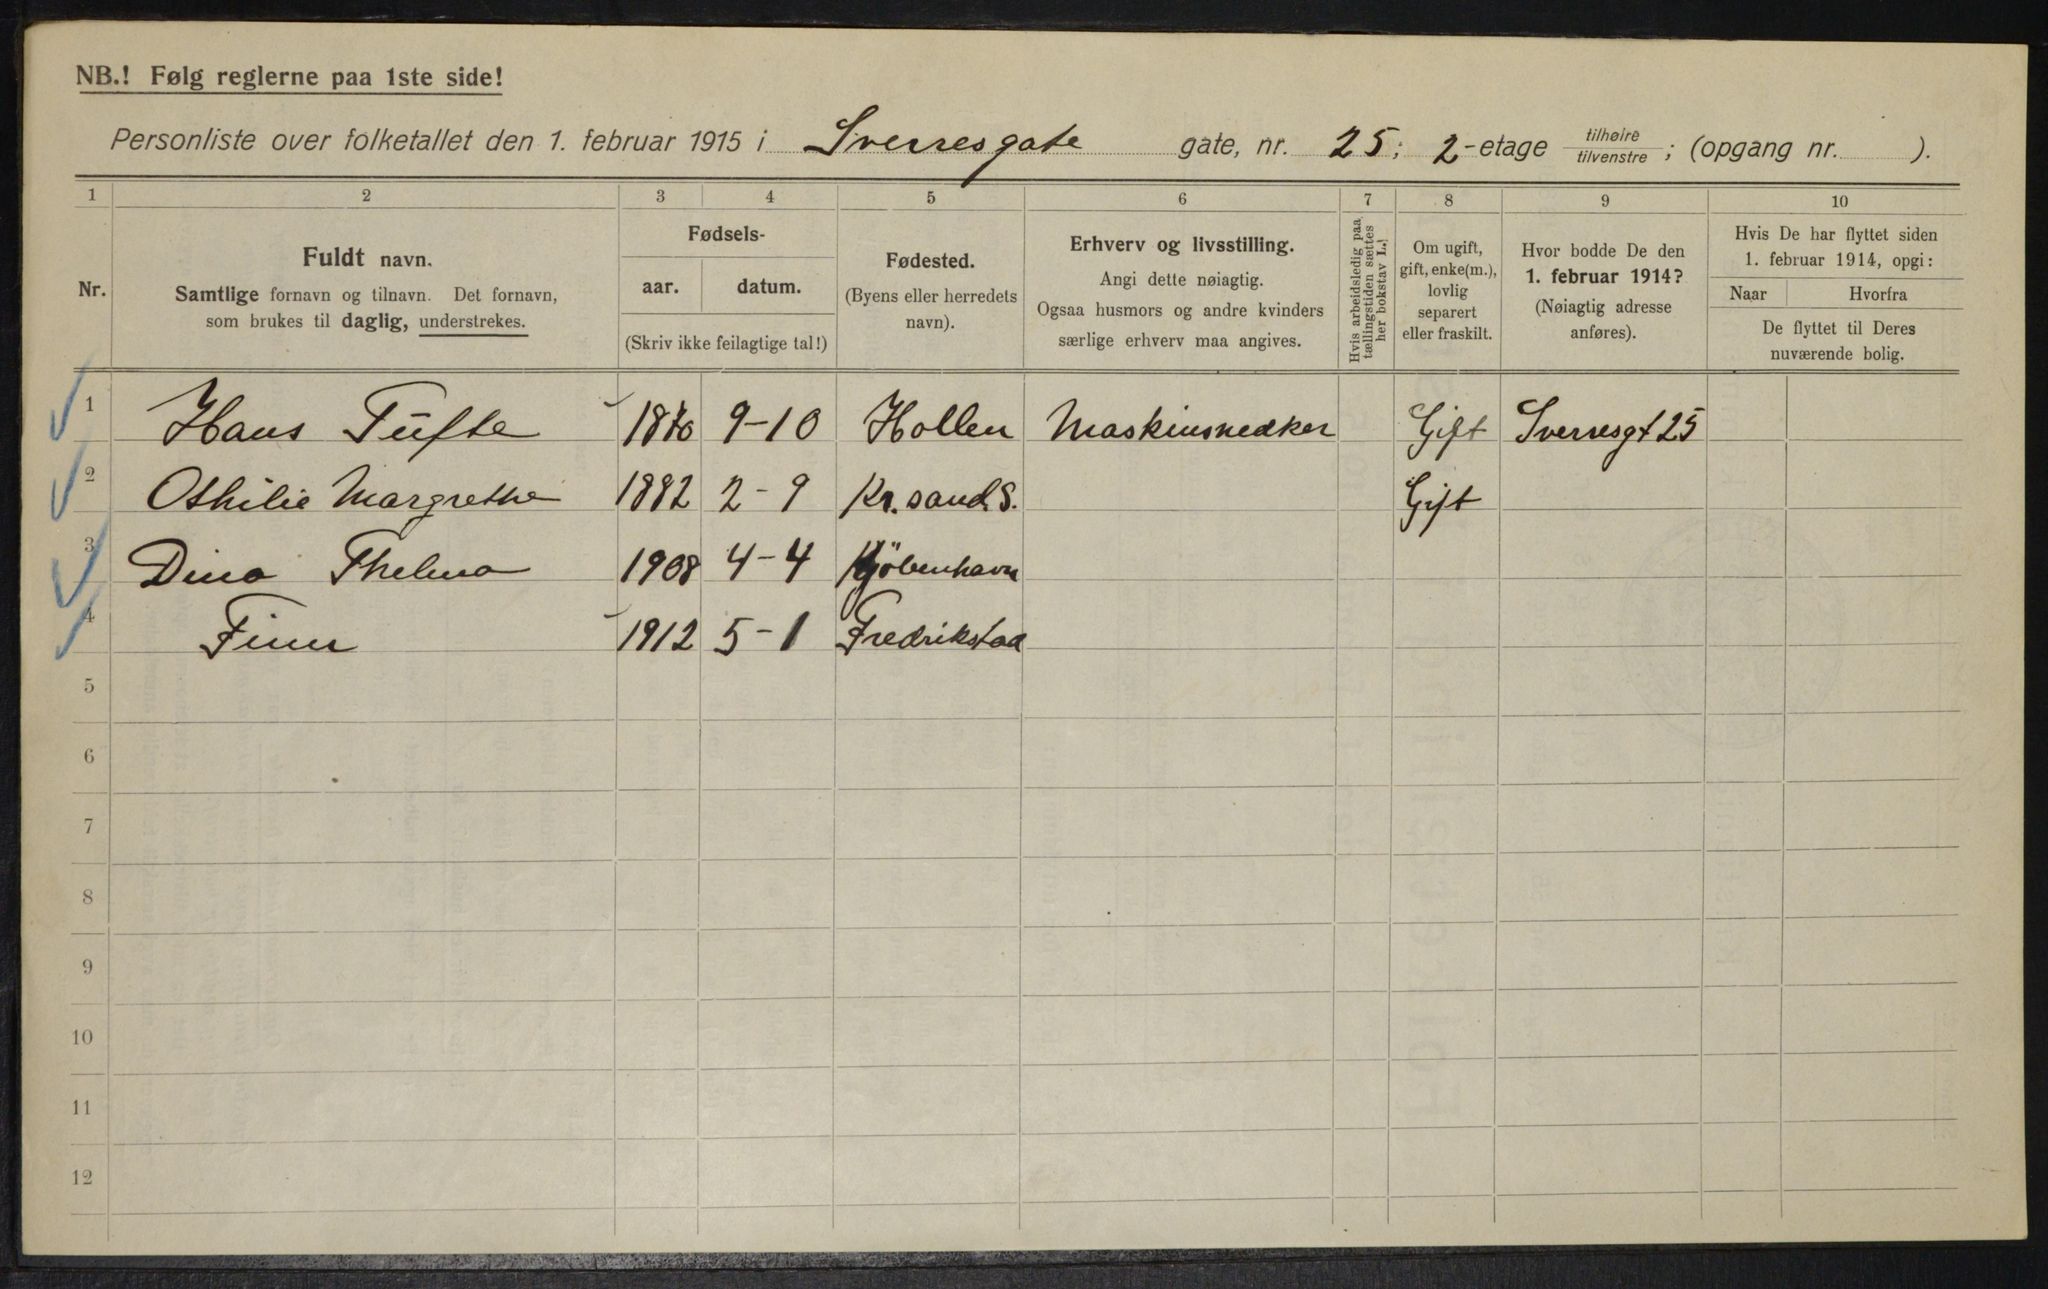 NB.! Følg reglerne paa 1ste side!
Personliste over folketallet den 1. februar 1915 i Sverresgate gate, nr. 25; 2-etage tilhøire/tilvenstre; (opgang nr. ).
1 2 3 4 5 6 7 8 9 10
Nr.
Fuldt navn.
Samtlige fornavn og tilnavn. Det fornavn,
som brukes til daglig, understrekes.
Fødsels-
aar. datum.
(Skriv ikke feilagtige tal!)
Fødested.
(Byens eller herredets
navn).
Erhverv og livsstilling.
Angi dette nøiagtig.
Ogsaa husmors og andre kvinders
særlige erhverv maa angives.
Hvis arbeidsledig paa
tællingstiden sættes
her bokstav L.]
Om ugift,
gift, enke(m.),
lovlig
separert
eller fraskilt.
Hvor bodde De den
1. februar 1914?
(Nøiagtig adresse
anføres).
Hvis De har flyttet siden
1. februar 1914, opgi:
Naar Hvorfra
De flyttet til Deres
nuværende bolig.
1 Hans Tufte 1870 9-10 Hollen Maskinsnedker Gift Sverresgt 25
2 Othilie Margrethe 1882 2-9 Kr.sand S. Gift
3 Dina Thelma 1908 4-4 Kjöbenhavn
4 Finn 1912 5-1 Fredrikstad
5
6
7
8
9
10
11
12